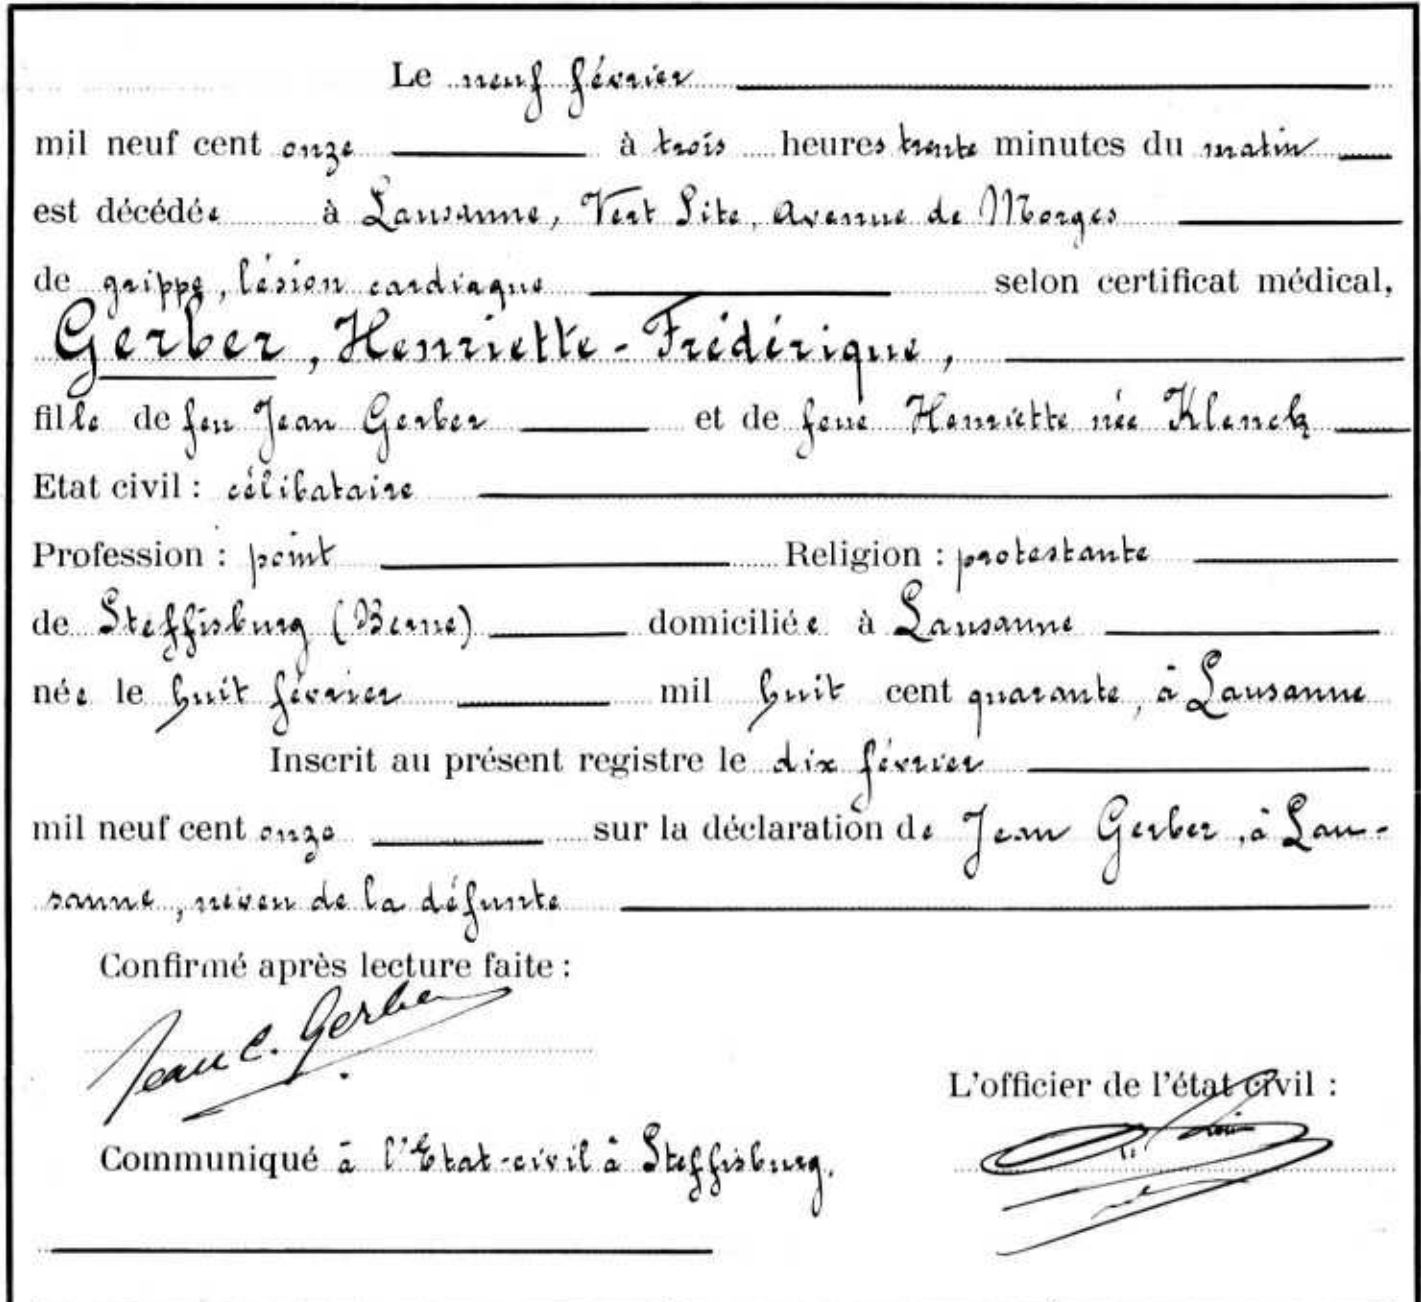 Le neuf février
mil neuf cent onze à trois heures trente minutes du matin
est décédée à Lausanne, Vert Site, Avenue de Morges
de grippe, lésion cardiaque selon certificat médical,
Gerber, Henriette-Frédérique,
fille de feu Jean Gerber et de feue Henriette née Klenck
Etat civil : célibataire
Profession : point Religion : protestante
de Steffisburg (Berne) domiciliée à Lausanne
née le huit février mil huit cent quarante, à Lausanne
Inscrit au présent registre le dix février
mil neuf cent onze sur la déclaration de Jean Gerber, à Lau-
sanne, neveu de la défunte
Confirmé après lecture faite :
Jean C. Gerber
L'officier de l'état civil :
Communiqué à l'Etat-civil à Steffisburg.